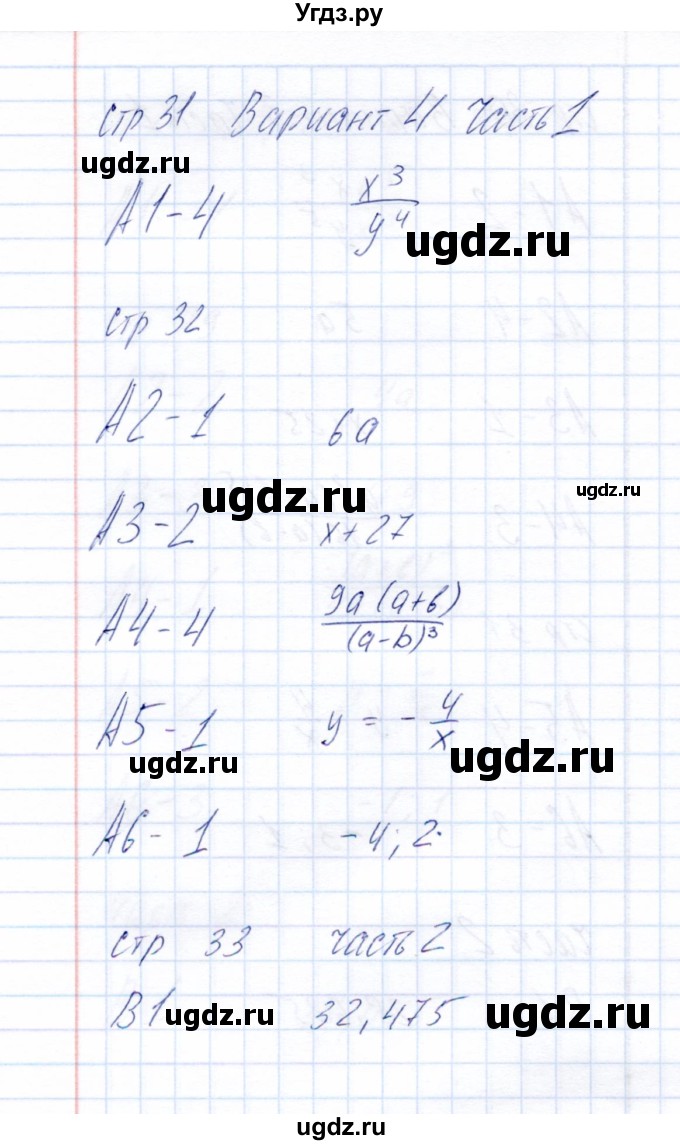 Угдз.ру
стр 31 Вариант 4 Часть 1
ugdz.ru
А1-4 x³/y⁴
ugdz.ru
стр 32
А2-1 6a
ugdz.ru
ugdz.ru
А3-2 x+27
А4-4 9a(a+b)/(a-b)³
А5-1 y = -4/x
ugdz.ru
ugdz.ru
А6-1 -4; 2.
стр 33 часть 2
В1 32,475
ugdz.ru
ugdz.ru
ugdz.ru